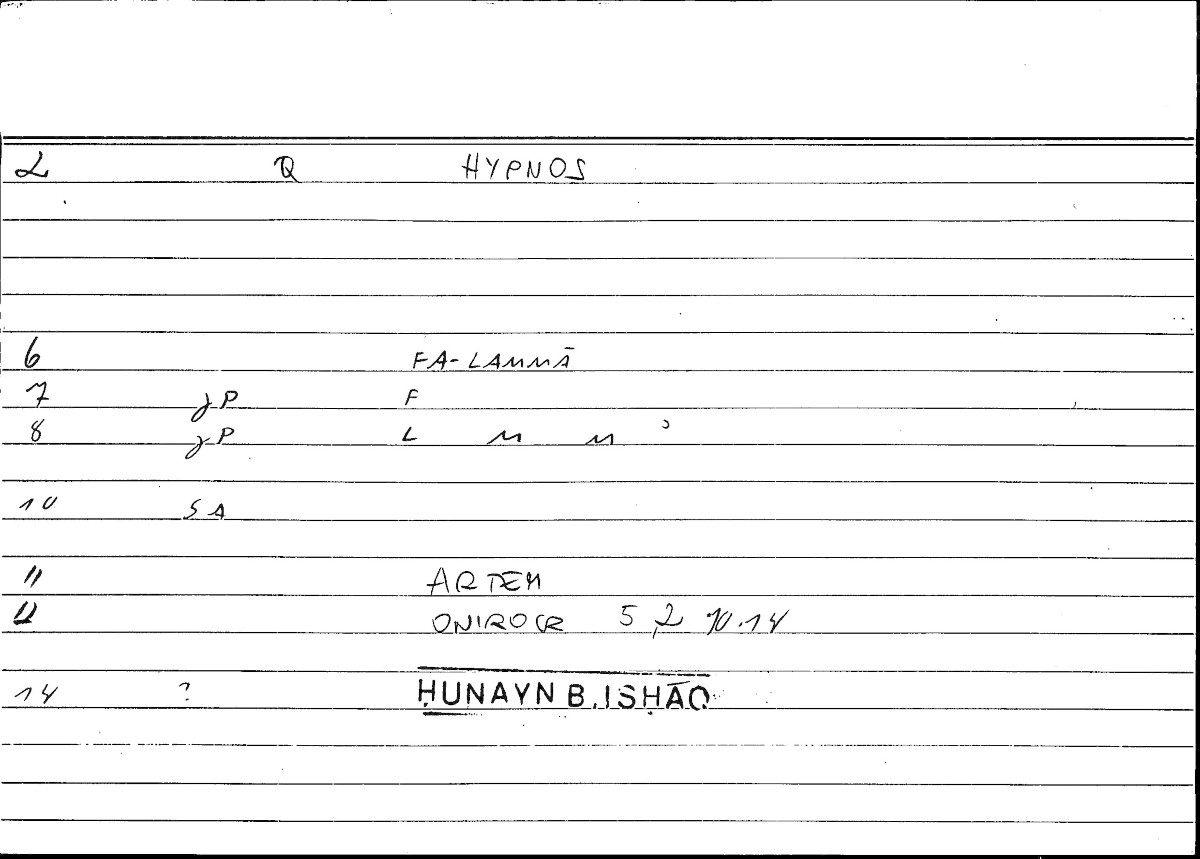 2 Q HYPNOS
6 FA-LAMMĀ
7 jP F
8 jP L M M ʾ
10 SA
11 ARTEM
12 ONIROCR 5,2 10.14
14 ? ḤUNAYN B. ISḤĀQ